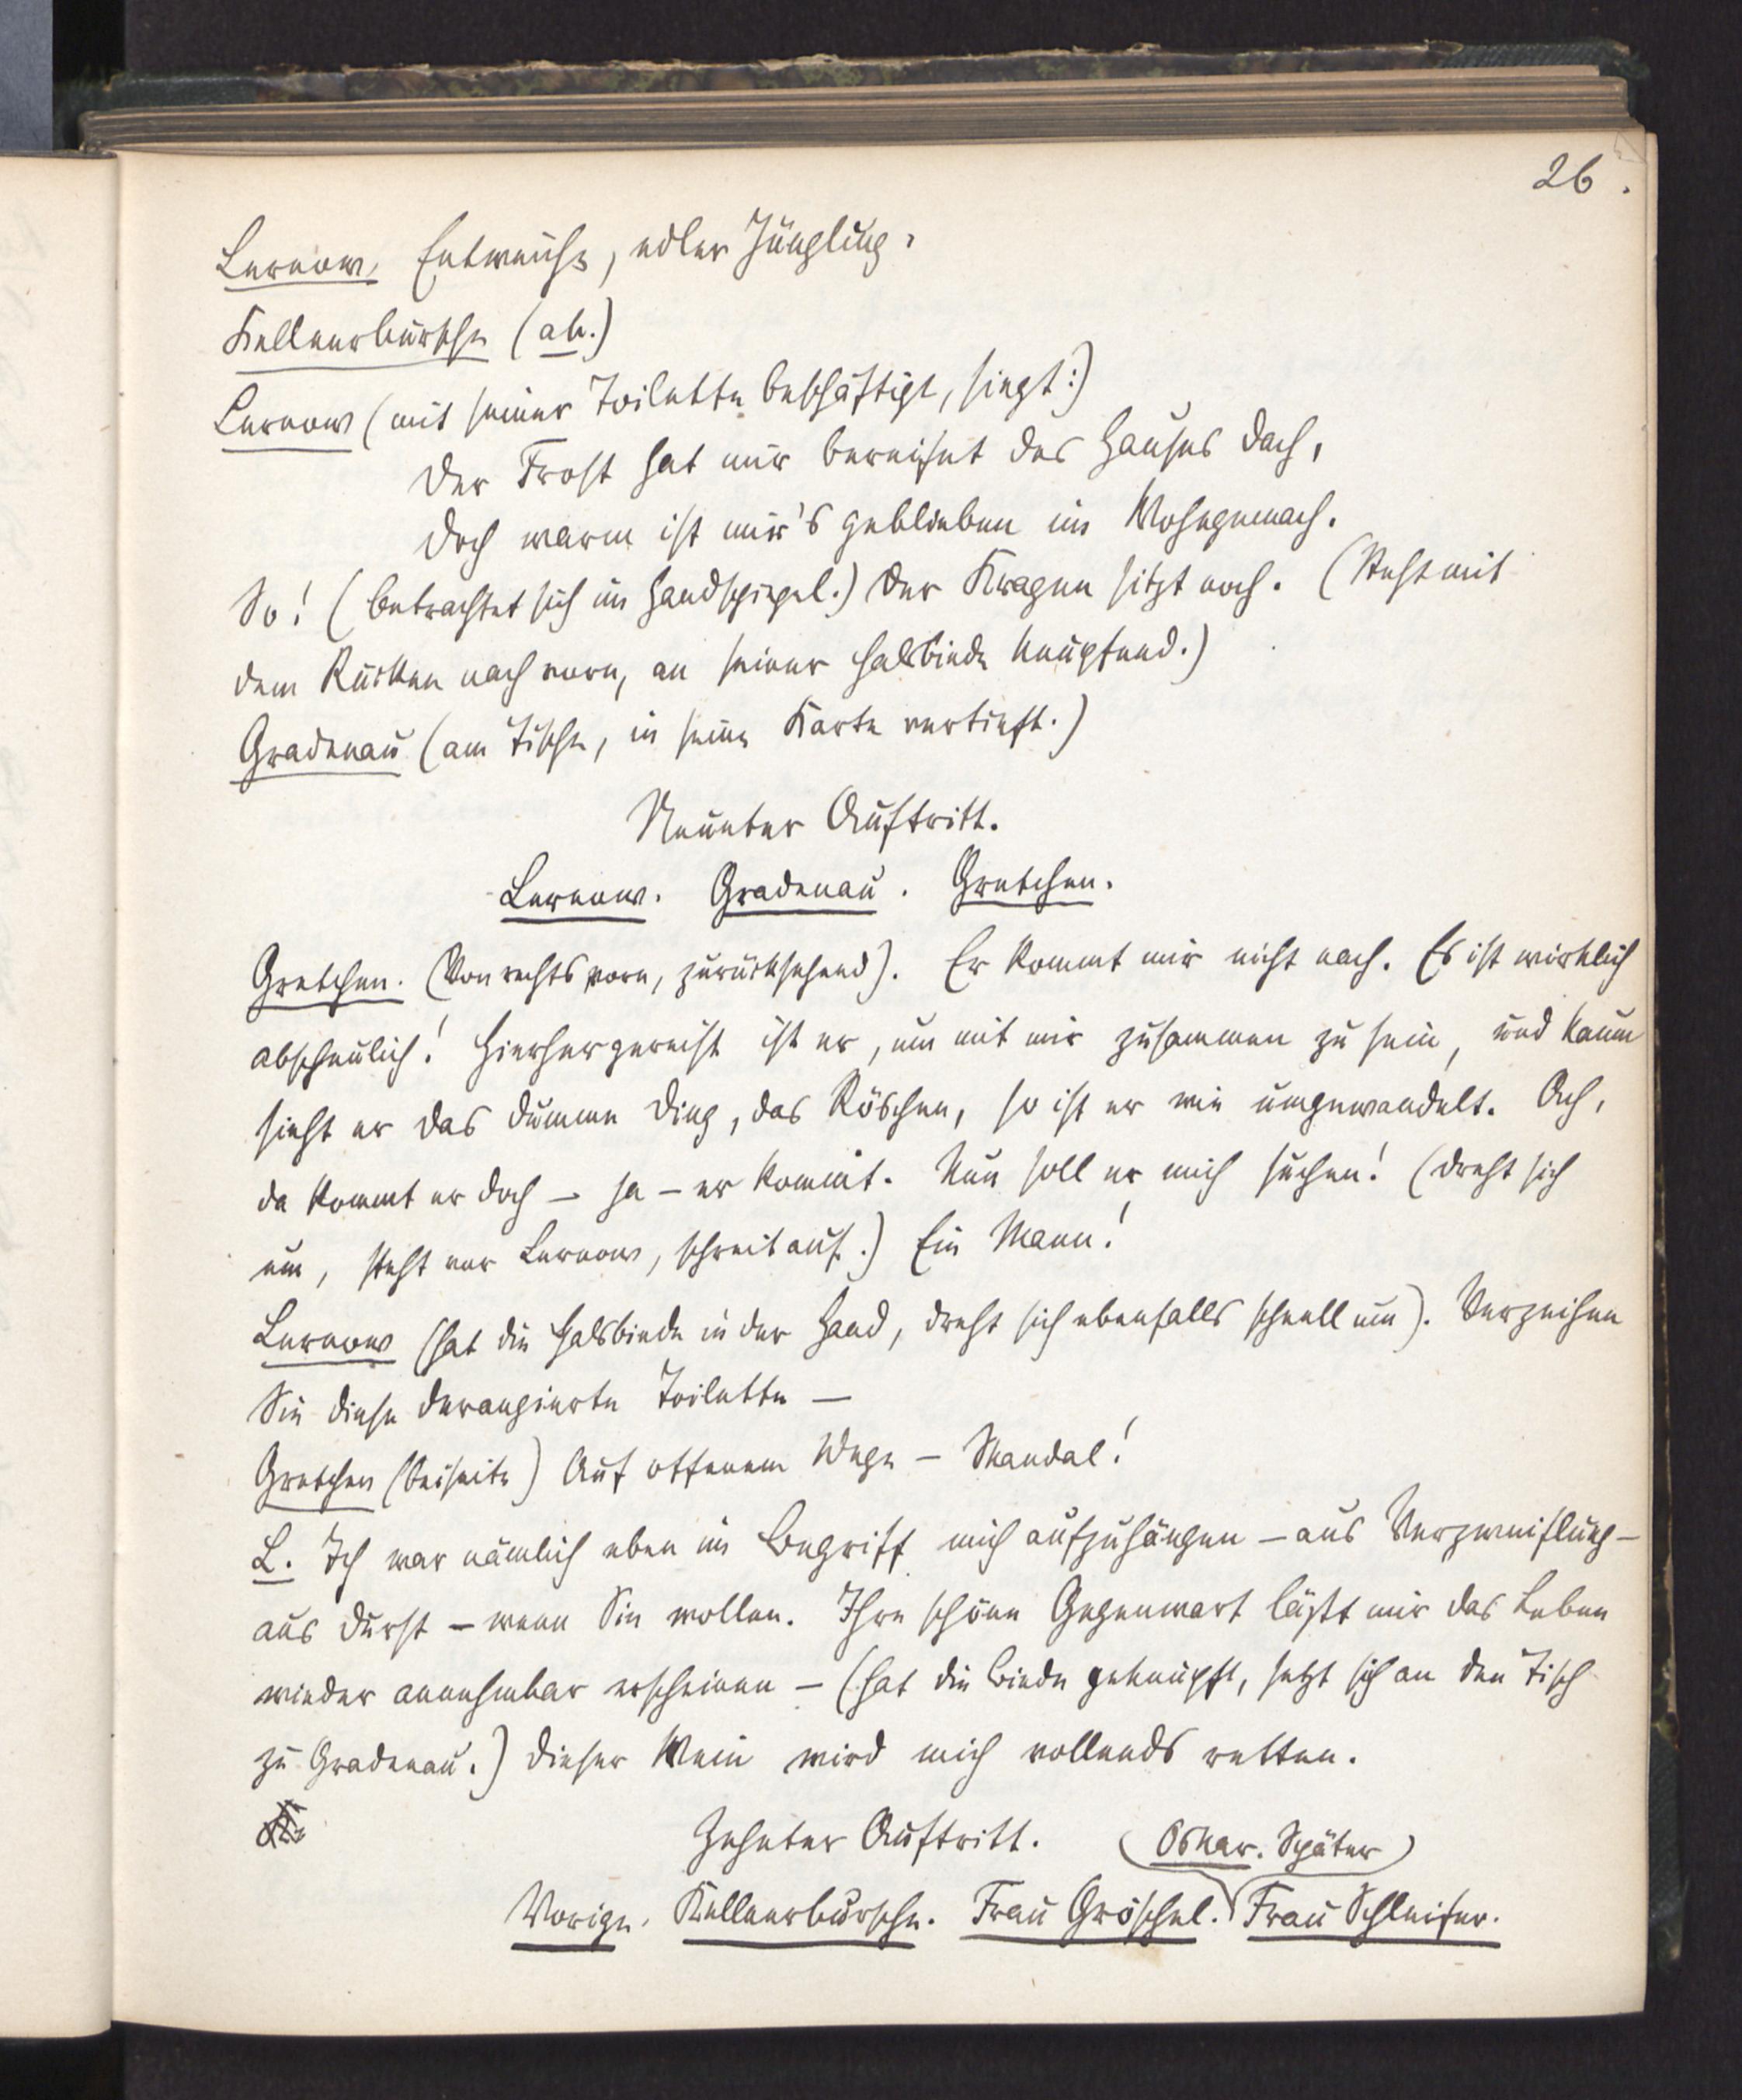 26.
Lernow. Entweiche, edler Jüngling.
Kellnerbursche (ab.)
Lernow (mit seiner Toilette beschäftigt, singt:)
Der Frost hat mir bereifet des Hauses Dach,
Doch warm ist mir's geblieben im Wohngemach.
So! (betrachtet sich im Handspiegel.) Der Kragen sitzt noch. (Steht mit
dem Rücken nach vorn, an seiner Halsbinde knüpfend.)
Gradenau (am Tische, in seine Karte vertieft.)
Neunter Auftritt.
Lernow. Gradenau. Gretchen.
Gretchen. (Von rechts vorn, zurücksehend). Er kommt mir nicht nach. Es ist wirklich
abscheulich! Hierhergereist ist er, um mit mir zusammen zu sein, und kaum
sieht er das dumme Ding, das Röschen, so ist er wie umgewandelt. Ach,
da kommt er doch – ja – er kommt. Nun soll er mich suchen! (Dreht sich
um, steht vor Lernow, schreit auf.) Ein Mann!
Lernow (hat die Halsbinde in der Hand, dreht sich ebenfalls schnell um). Verzeihen
Sie diese derangierte Toilette –
Gretchen (beiseite) Auf offenem Wege – Skandal!
L. Ich war nämlich eben im Begriff mich aufzuhängen – aus Verzweiflung –
aus Durst – wenn Sie wollen. Ihre schöne Gegenwart läßt mir das Leben
wieder annehmbar erscheinen – (hat die Binde geknüpft, setzt sich an den Tisch
zu Gradenau.) Dieser Wein wird mich vollends retten.
Zehnter Auftritt. (Oskar. Später)
Vorige. Kellnerbursche. Frau Gröschel. Frau Schleifer.